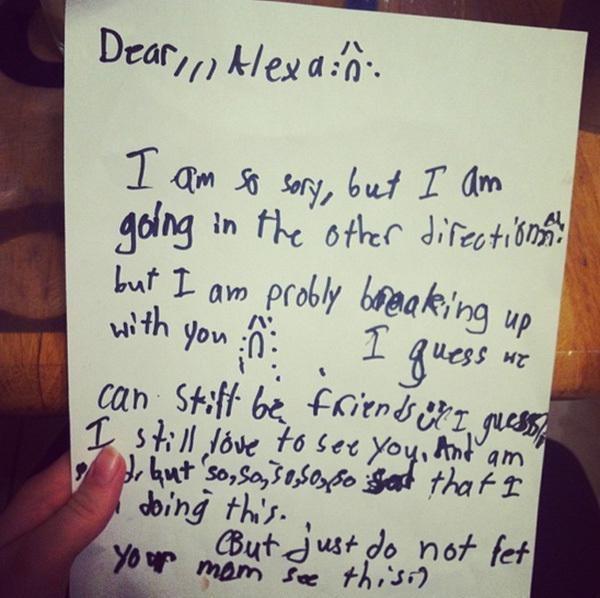 Dear,,, Alexa
I am so sory, but I am
going in the other direction
but I am probly breaking up
with you
I guess we
can still be friends I guess
I still love to see you. And am
but so, so, so, so, so sad that I
doing this.
(But just do not let
your mom see this!)